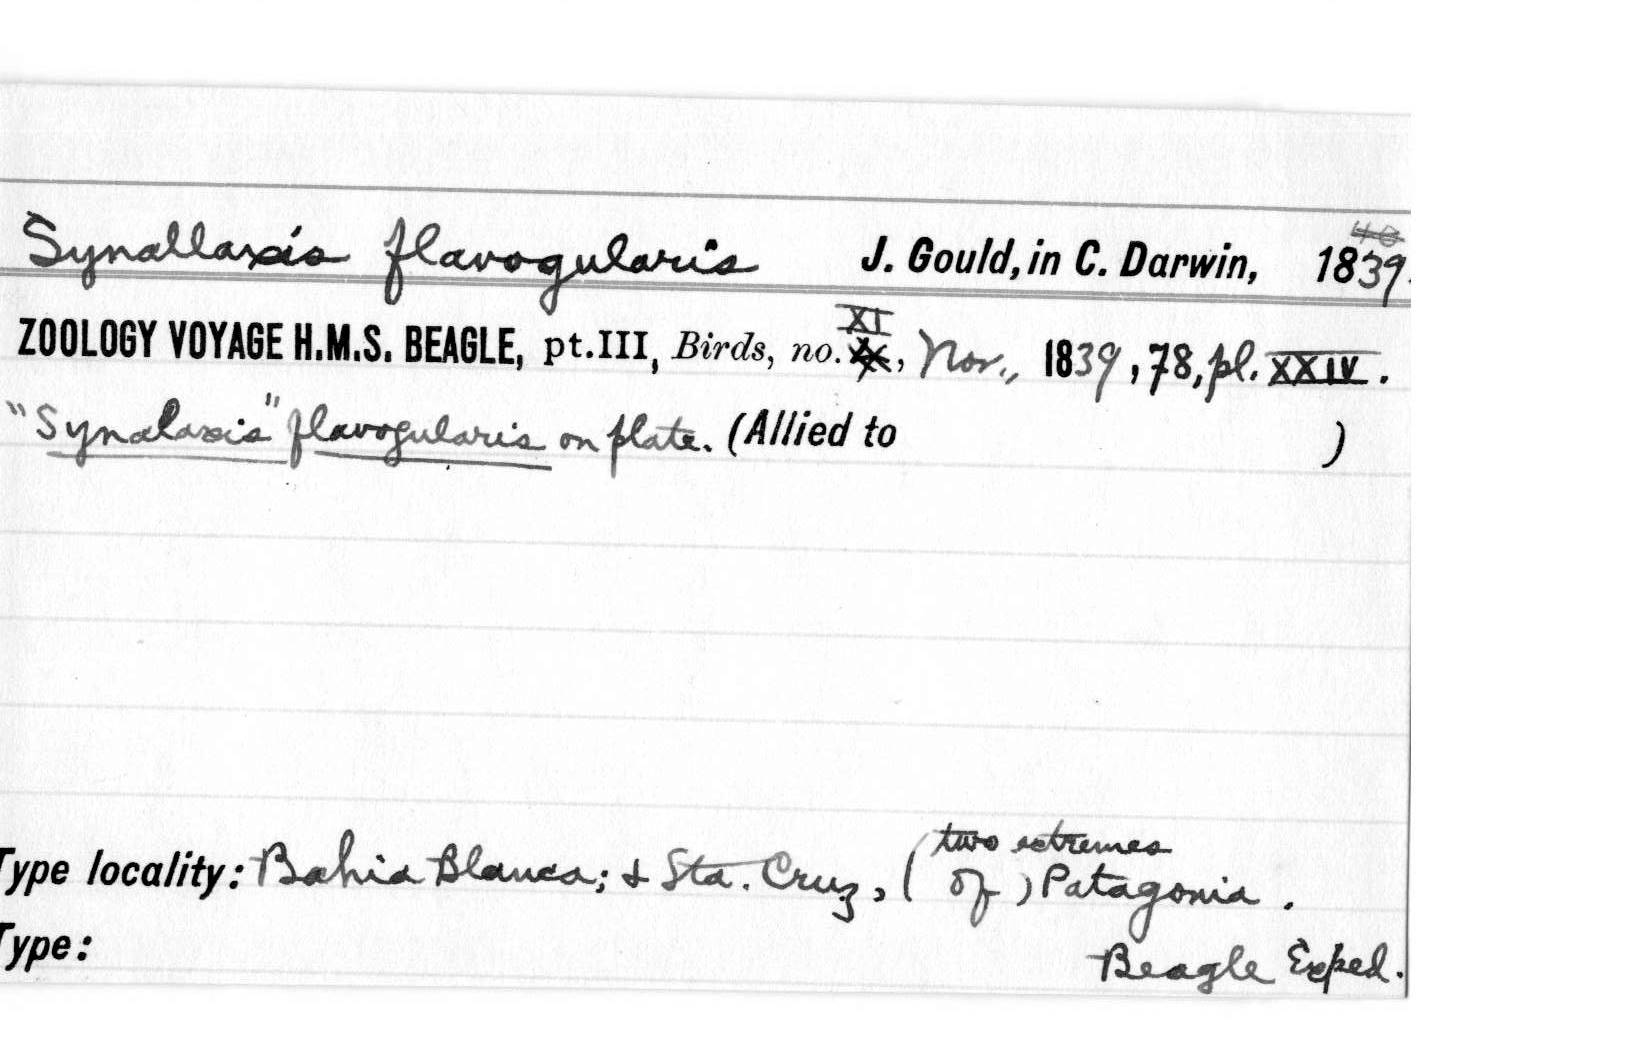 Synallaxis flavogularis J. Gould, in C. Darwin, 1839.
ZOOLOGY VOYAGE H.M.S. BEAGLE, pt.III, Birds, no. XI, Nov., 1839, 78, pl. XXIV.
"Synalaxis" flavogularis on plate. (Allied to )
Type locality: Bahia Blanca; & Sta. Cruz, (two extremes of) Patagonia.
Type: Beagle Exped.